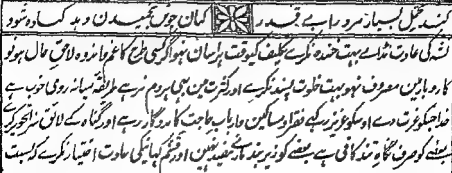 کند خجل بسیار مرد را بے قدر کمان چون بچمیدن دہد کباوہ شود
کی عادت نڈالے بہت خندہ نکرے تکلیف کیوقت ہراسان نہو اگر کسی طرح کا غم عائد ہو لاحق حال ہو تو
کاروبار مین مصروف نہو بہت خلوت پسند نکرے اور کثرت مین بھی ہر دم نرہے طریقہ میانہ روی خوب ہے
خدا جسکو عزت دے اوسکو عزیز رکھے فقرا و مساکین و ارباب حاجت کا مددگار رہے اور گناہ کے لائق سزا تجویز کرے
بعضے کو صرف نگاہ تند کافی ہے بعضے کو زیر بند مارے مفید نہین اور قسم کھانیکی عادت اختیار نکرے کہ نسبت